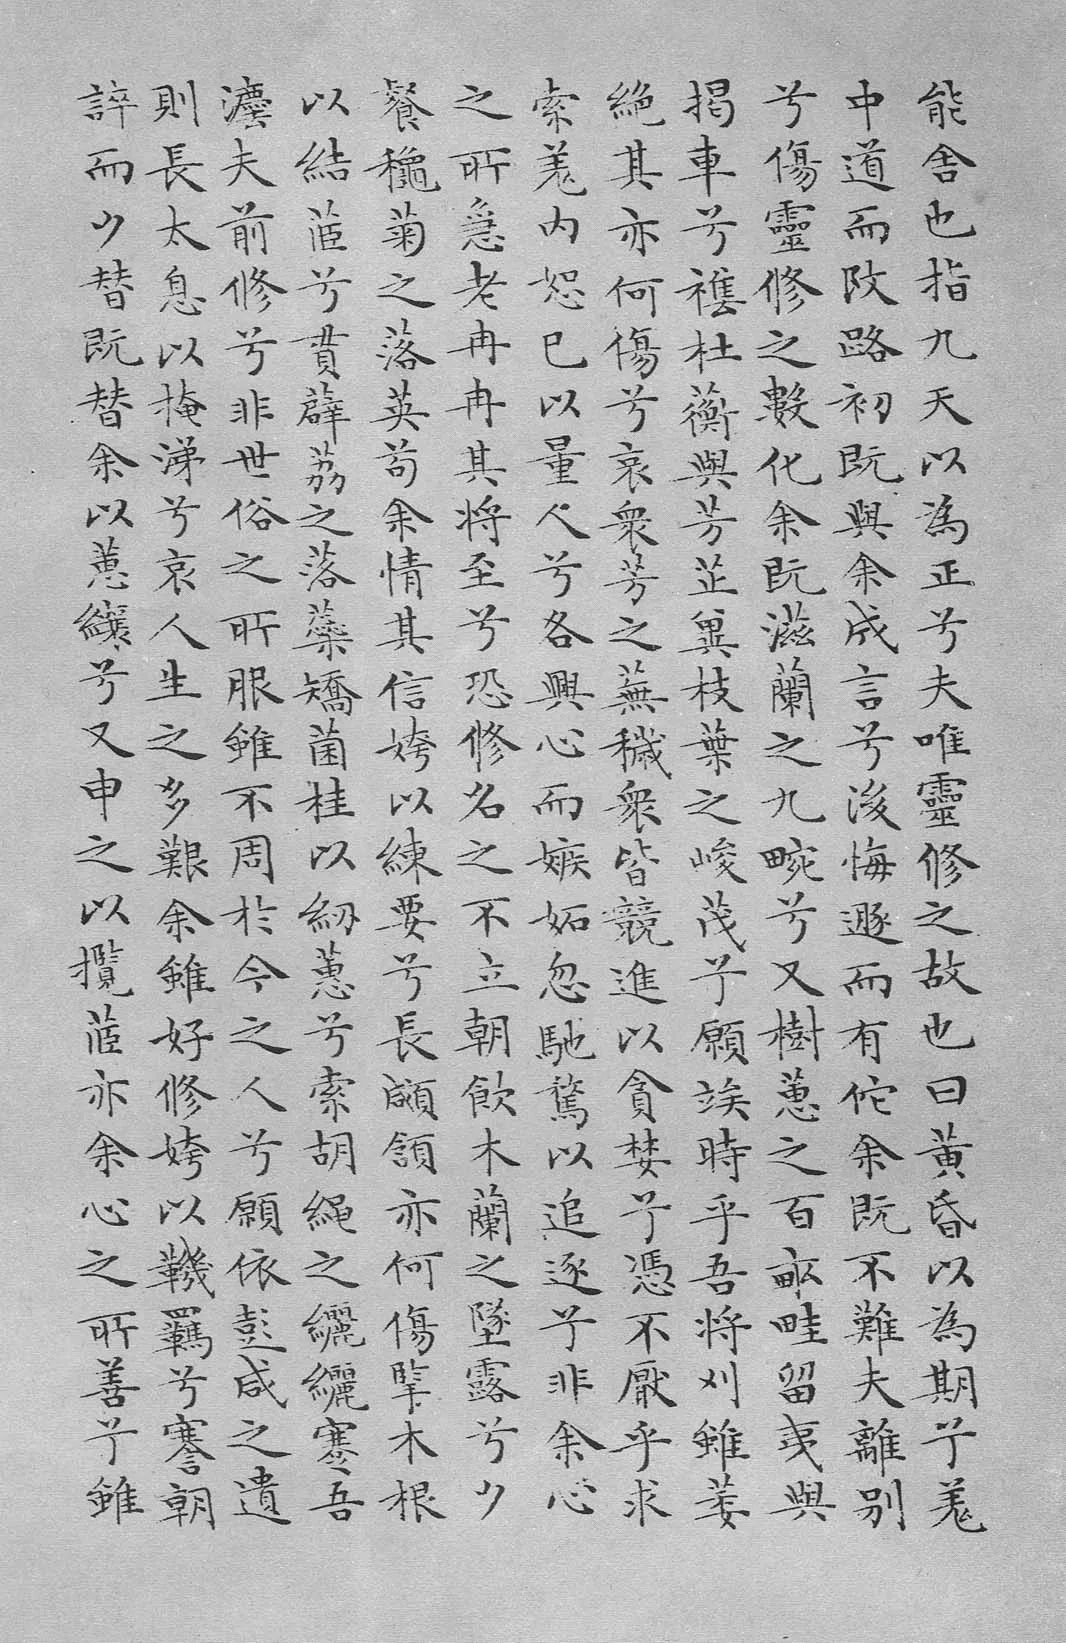 能舍也指九天以為正兮夫唯靈修之故也曰黃昏以為期兮羌
中道而改路初既與余成言兮後悔遯而有佗余既不難夫離別
兮傷靈修之數化余既滋蘭之九畹兮又樹蕙之百畝畦留夷與
揭車兮襍杜蘅與芳芷冀枝葉之峻茂兮願竢時乎吾將刈雖萎
絕其亦何傷兮哀衆芳之蕪穢衆皆競進以貪婪兮憑不厭乎求
索羌內恕已以量人兮各興心而嫉妬忽馳騖以追逐兮非余心
之所急老冉冉其將至兮恐修名之不立朝飲木蘭之墜露兮夕
餐秋菊之落英苟余情其信姱以練要兮長顑頷亦何傷擥木根
以結茝兮貫薜荔之落蘂矯菌桂以紉蕙兮索胡繩之纚纚謇吾
灋夫前修兮非世俗之所服雖不周於今之人兮願依彭咸之遺
則長太息以掩涕兮哀人生之多艱余雖好修姱以鞿羈兮謇朝
誶而夕替既替余以蕙纕兮又申之以攬茝亦余心之所善兮雖